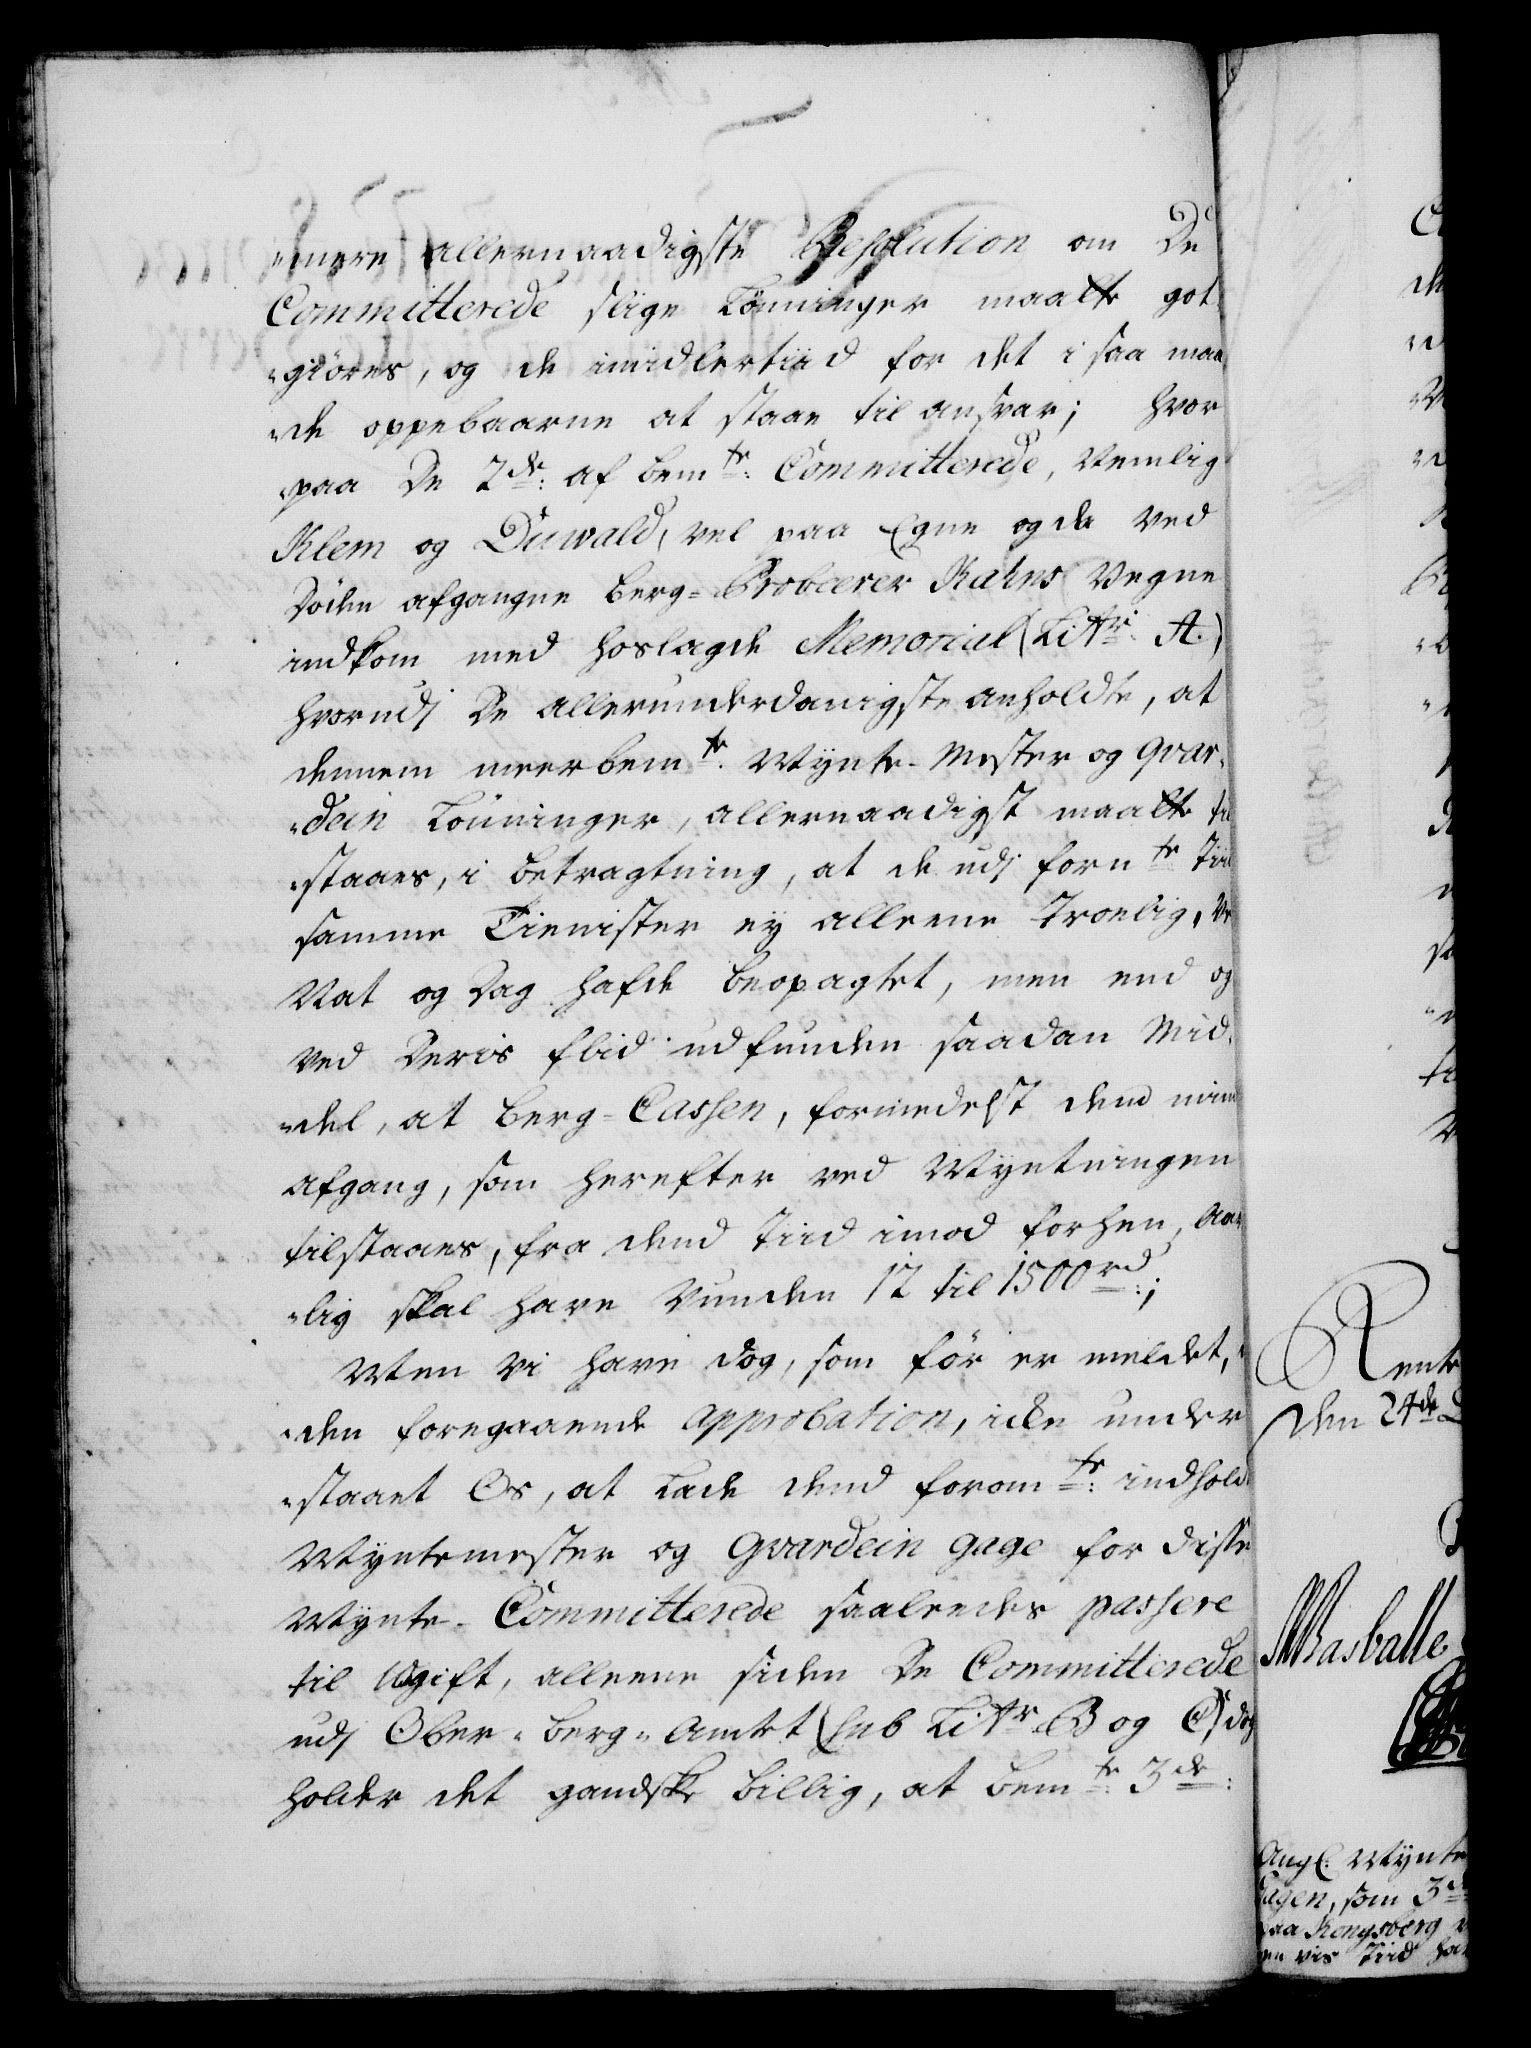 "mere allernaadigste Resolution om De
Committerede slige Lønninger maatte got
"giöres, og de imidlertiid for det i saa maa
"de oppebaarne at staae til ansvar; hvor
"paa De 2de: af bemte: Committerede, Nemlig
Klem og Duwald, vel paa Egne og de ved
Döden afgangne Berg-Probeerer Rahns Vegne
indkom med hoslagde Memorial (Littr: A.)
hvorudj De allerunderdanigste anholdte, at
dennem meerbemte: Mynte-Mester og Qvar-
"dein Lønninger, allernaadigst maatte til
"staaes, i betragtning, at de udj fornte Tiid
samme Tienister ey alleene Troelig, Ved
Nat og Dag hafde beopagtet, men end og
ved Deris flid udfunden saadan Mid-
"del, at Berg-Cassen, formedelst dend mindre
afgang, som herefter ved Myntningen
tilstaaes, fra dend Tiid imod forhen, Aar
"lig skal have Vunden 12 til 1500rd:;
Men Vi have dog, som för er meldet, u
"den foregaaende Approbation, icke under
"staaet Os, at Lade dend foromte: indhold
Myntemester og Gvardein gage for disse
Mynte-Committerede saaleedes passere
til Udgift, alleene siden De Committerede
udj Ober-Berg-Amtet (sub Littr B og C) dog
holder det gandske billig, at bemte: 3de:
Rente
den 24de
Basballe
Ang: Mynte
Gagen, som 3de
paa Kongsberg
en vis Tiid ha